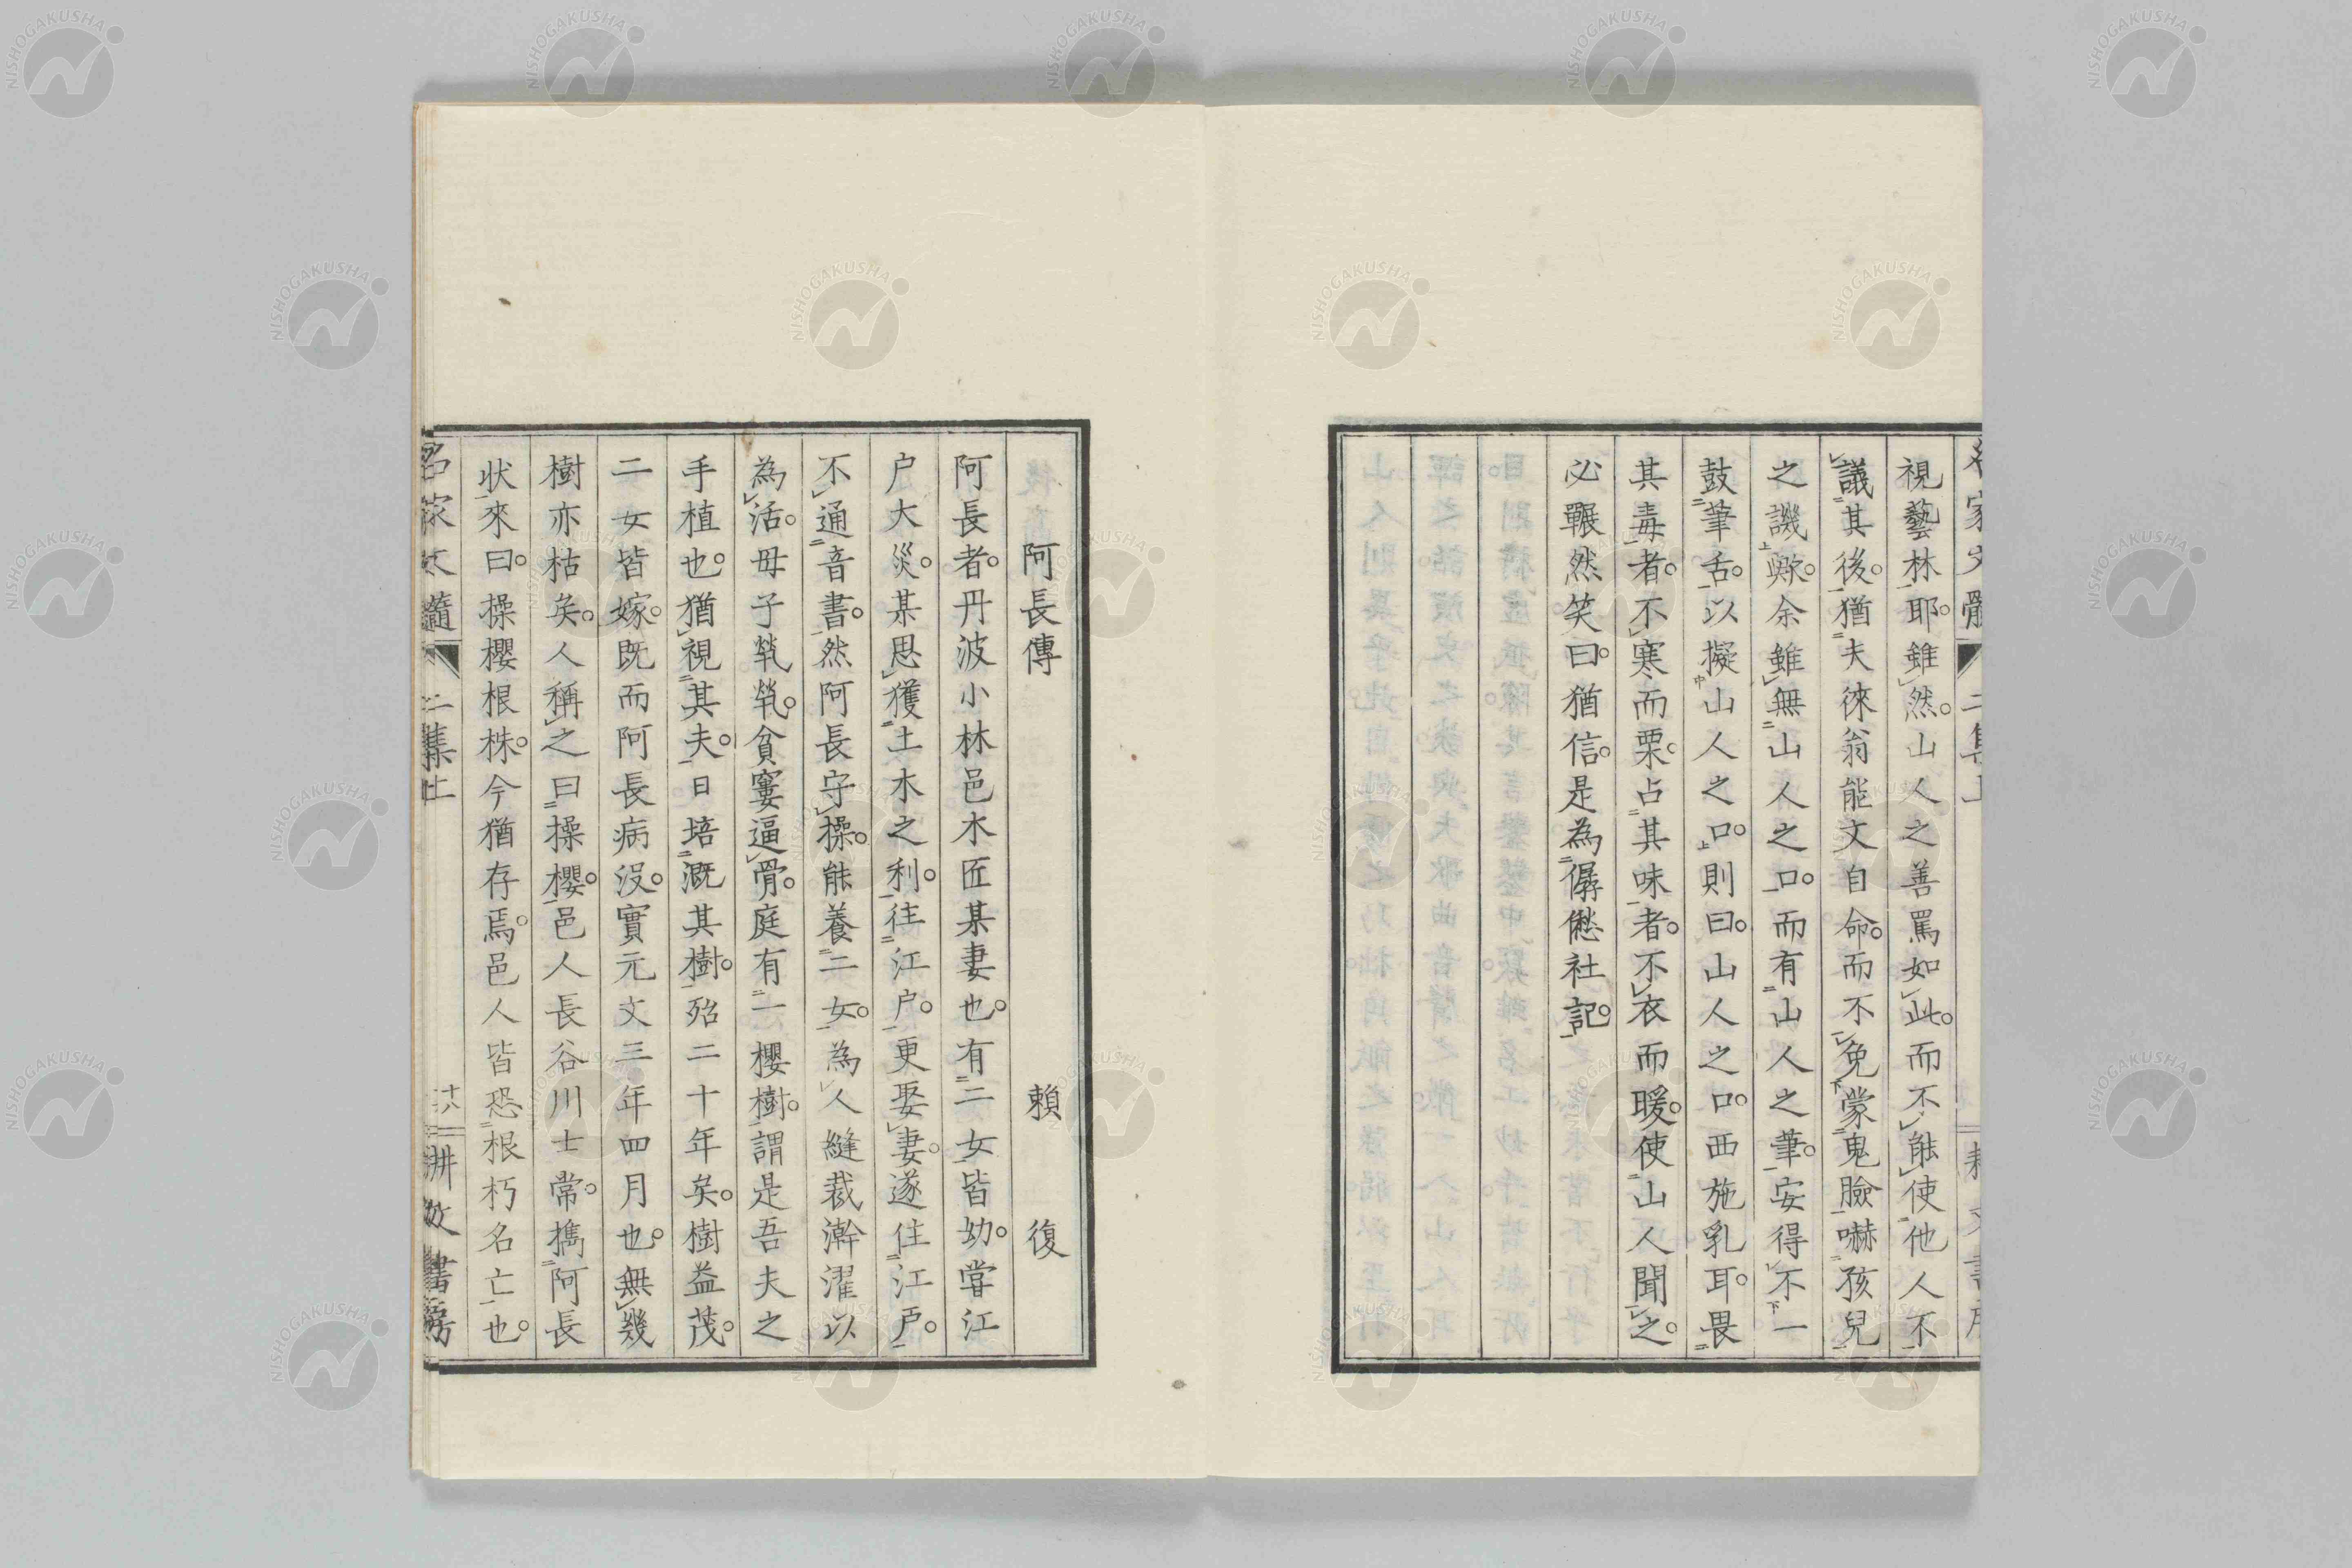 視藝林耶。雖然。山人之善罵如此。而不能使他人不
議其後。猶夫徠翁能文自命。而不免蒙鬼臉嚇孩兒
之譏歟。余雖無山人之口。而有山人之筆。安得不一
鼓筆舌。以擬山人之口。則曰。山人之口。西施乳耳。畏
其毒者。不寒而栗。占其味者。不衣而暖。使山人聞之。
必囅然笑曰。猶信。是為僝僽社記。
阿長傳 賴 復
阿長者。丹波小林邑木匠某妻也。有二女皆幼。甞江
戸大災。某思獲土木之利。往江戸。更娶妻。遂住江戸。
不通音書。然阿長守操。能養二女。為人縫裁澣濯以
為活。母子煢煢。貧窶逼骨。庭有一櫻樹。謂是吾夫之
手植也。猶視其夫。日培漑其樹。殆二十年矣。樹益茂。
二女皆嫁。既而阿長病沒。實元文三年四月也。無幾
樹亦枯矣。人稱之曰操櫻。邑人長谷川士常。擕阿長
状來曰。操櫻根株。今猶存焉。邑人皆恐根朽名亡也。
名家文髓 二集上 十六 耕文書房
NISHOGAKUSHA